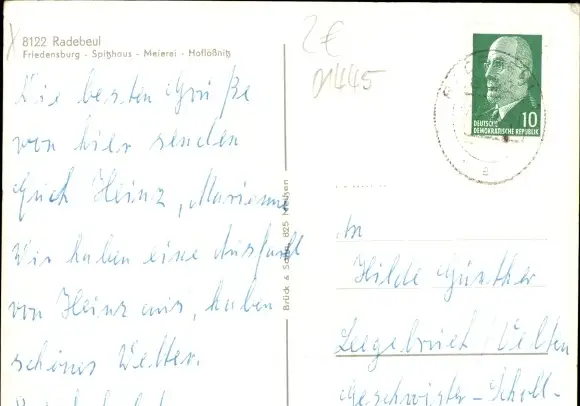 8122 Radebeul
Friedensburg - Spitzhaus - Meierei - Hoflößnitz
Die besten Grüße
von hier senden
Euch Heinz, Marianne
Wir haben eine Ausfahrt
von Heinz aus, haben
schönes Wetter.
2€
Brück & Sohn, 825 Meißen
10
DEUTSCHE
DEMOKRATISCHE REPUBLIK
An
Hilde Günther
Leegebruch / Velten
Geschwister-Scholl-